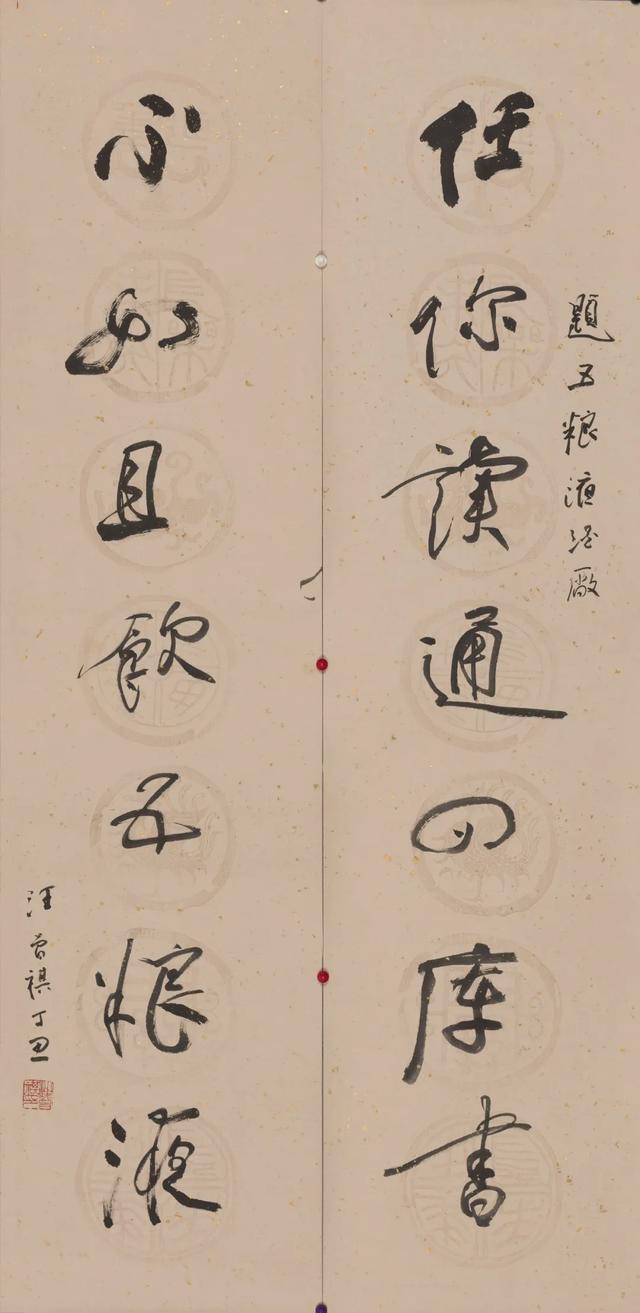 题五粮液酒厰
任你读通四库书
不如且飲五粮液
汪曾祺丁丑